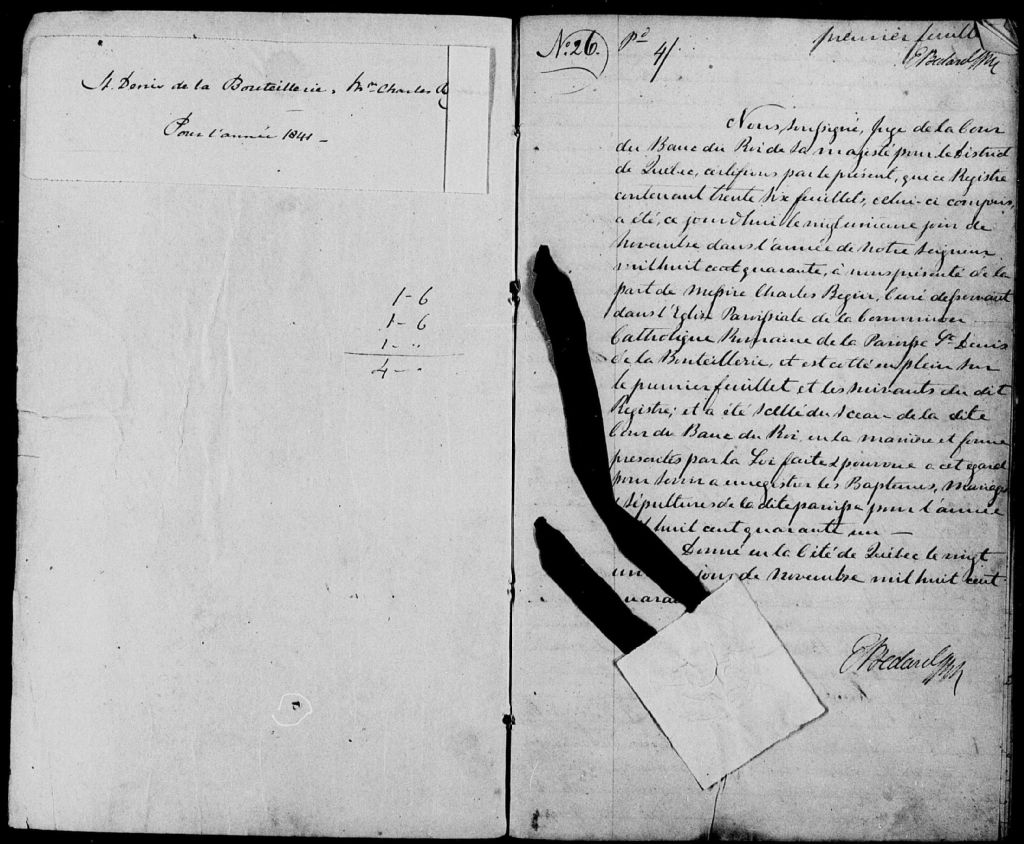 St. Denis de la Bouteillerie, Mre Charles
Pour l'année 1841 -
1-6
1-6
1-"
4-"
No. 26.
Pd
4/
premier feuillet
E Bedard JBR
Nous, soussigné, Juge de la Cour
du Banc du Roi de Sa majesté pour le District
de Québec, certifions par le présent, que ce Registre
contenant trente six feuillets, celui-ci compris,
a été, ce jourd'hui le vingt unieme jour de
Novembre dans l'année de Notre Seigneur
mil huit cent quarante, à nous présenté de la
part de Messire Charles Begin, Curé desservant
dans l'Eglise Paroissiale de la Communion
Catholique Romaine de la Paroisse St. Denis
de la Bouteillerie, et est cotté en plein sur
le premier feuillet et les suivants du dit
Registre; et a été scellé du Sceau de la dite
Cour du Banc du Roi, en la maniere et forme
prescrites par la Loi faite & pourvue a cet egard
pour servir a enregistrer les Baptemes, Mariages
& Sépultures de la dite paroisse pour l'année
mil huit cent quarante un -
Donné en la Cité de Québec le vingt
un jour de Novembre mil huit cent
quara
E Bedard JBR